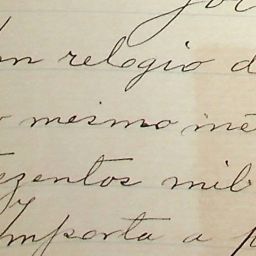 relogio d
mesmo me
ezentos mil
importa a p